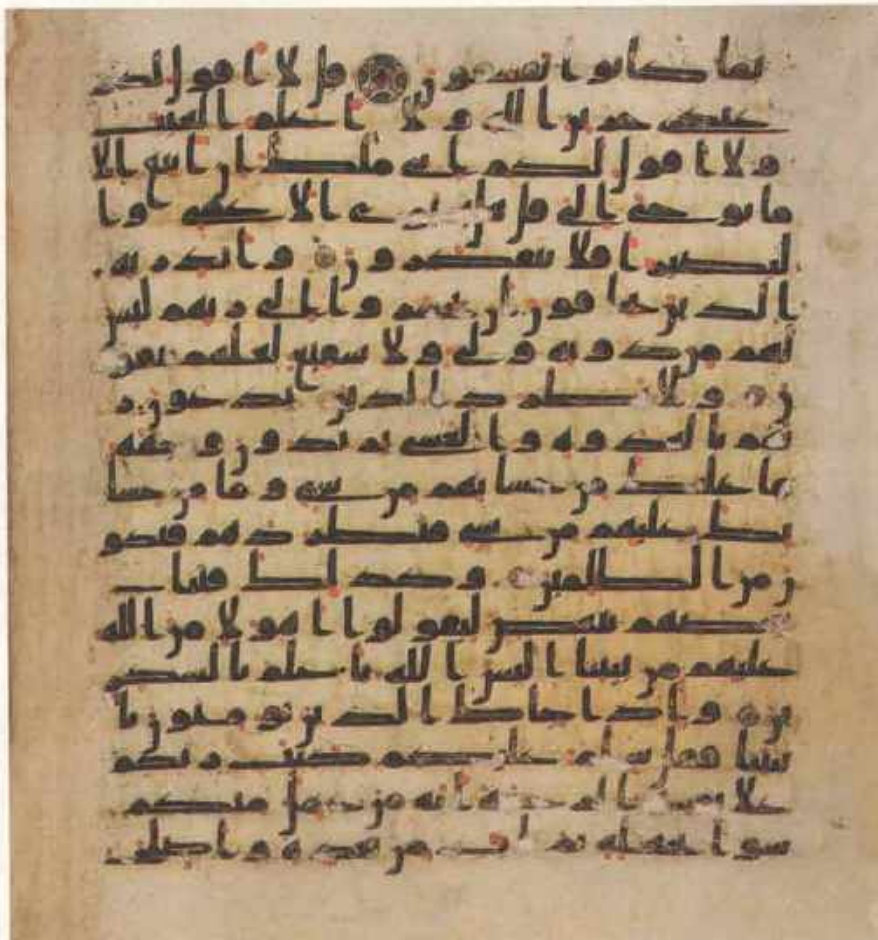 بما كانوا يفسقون قل لا اقول لكم
عندي خزين الله ولا اعلم الغيب
ولا اقول لكم اني ملك ان اتبع الا
ما يوحى الي قل هل يستوي الاعمى وا
لبصير افلا تتفكرون وانذر به
الذين يخافون ان يحشروا الى ربهم ليس
لهم من دونه ولي ولا شفيع لعلهم يتقو
ن ولا تطرد الذين يدعون ر
بهم بالغدوة والعشي يريدون وجهه
ما عليك من حسابهم من شي وما من حسا
بك عليهم من شي فتطردهم فتكو
ن من الظلمين وكذلك فتنا ب
عضهم ببعض ليقولوا اهولا من الله
عليهم من بيننا اليس الله باعلم بالشكر
ين واذا جاك الذين يومنون با
يتنا فقل سلم عليكم كتب ربكم
على نفسه الرحمة انه من عمل منكم
سوا بجهلة ثم تاب من بعده واصلح